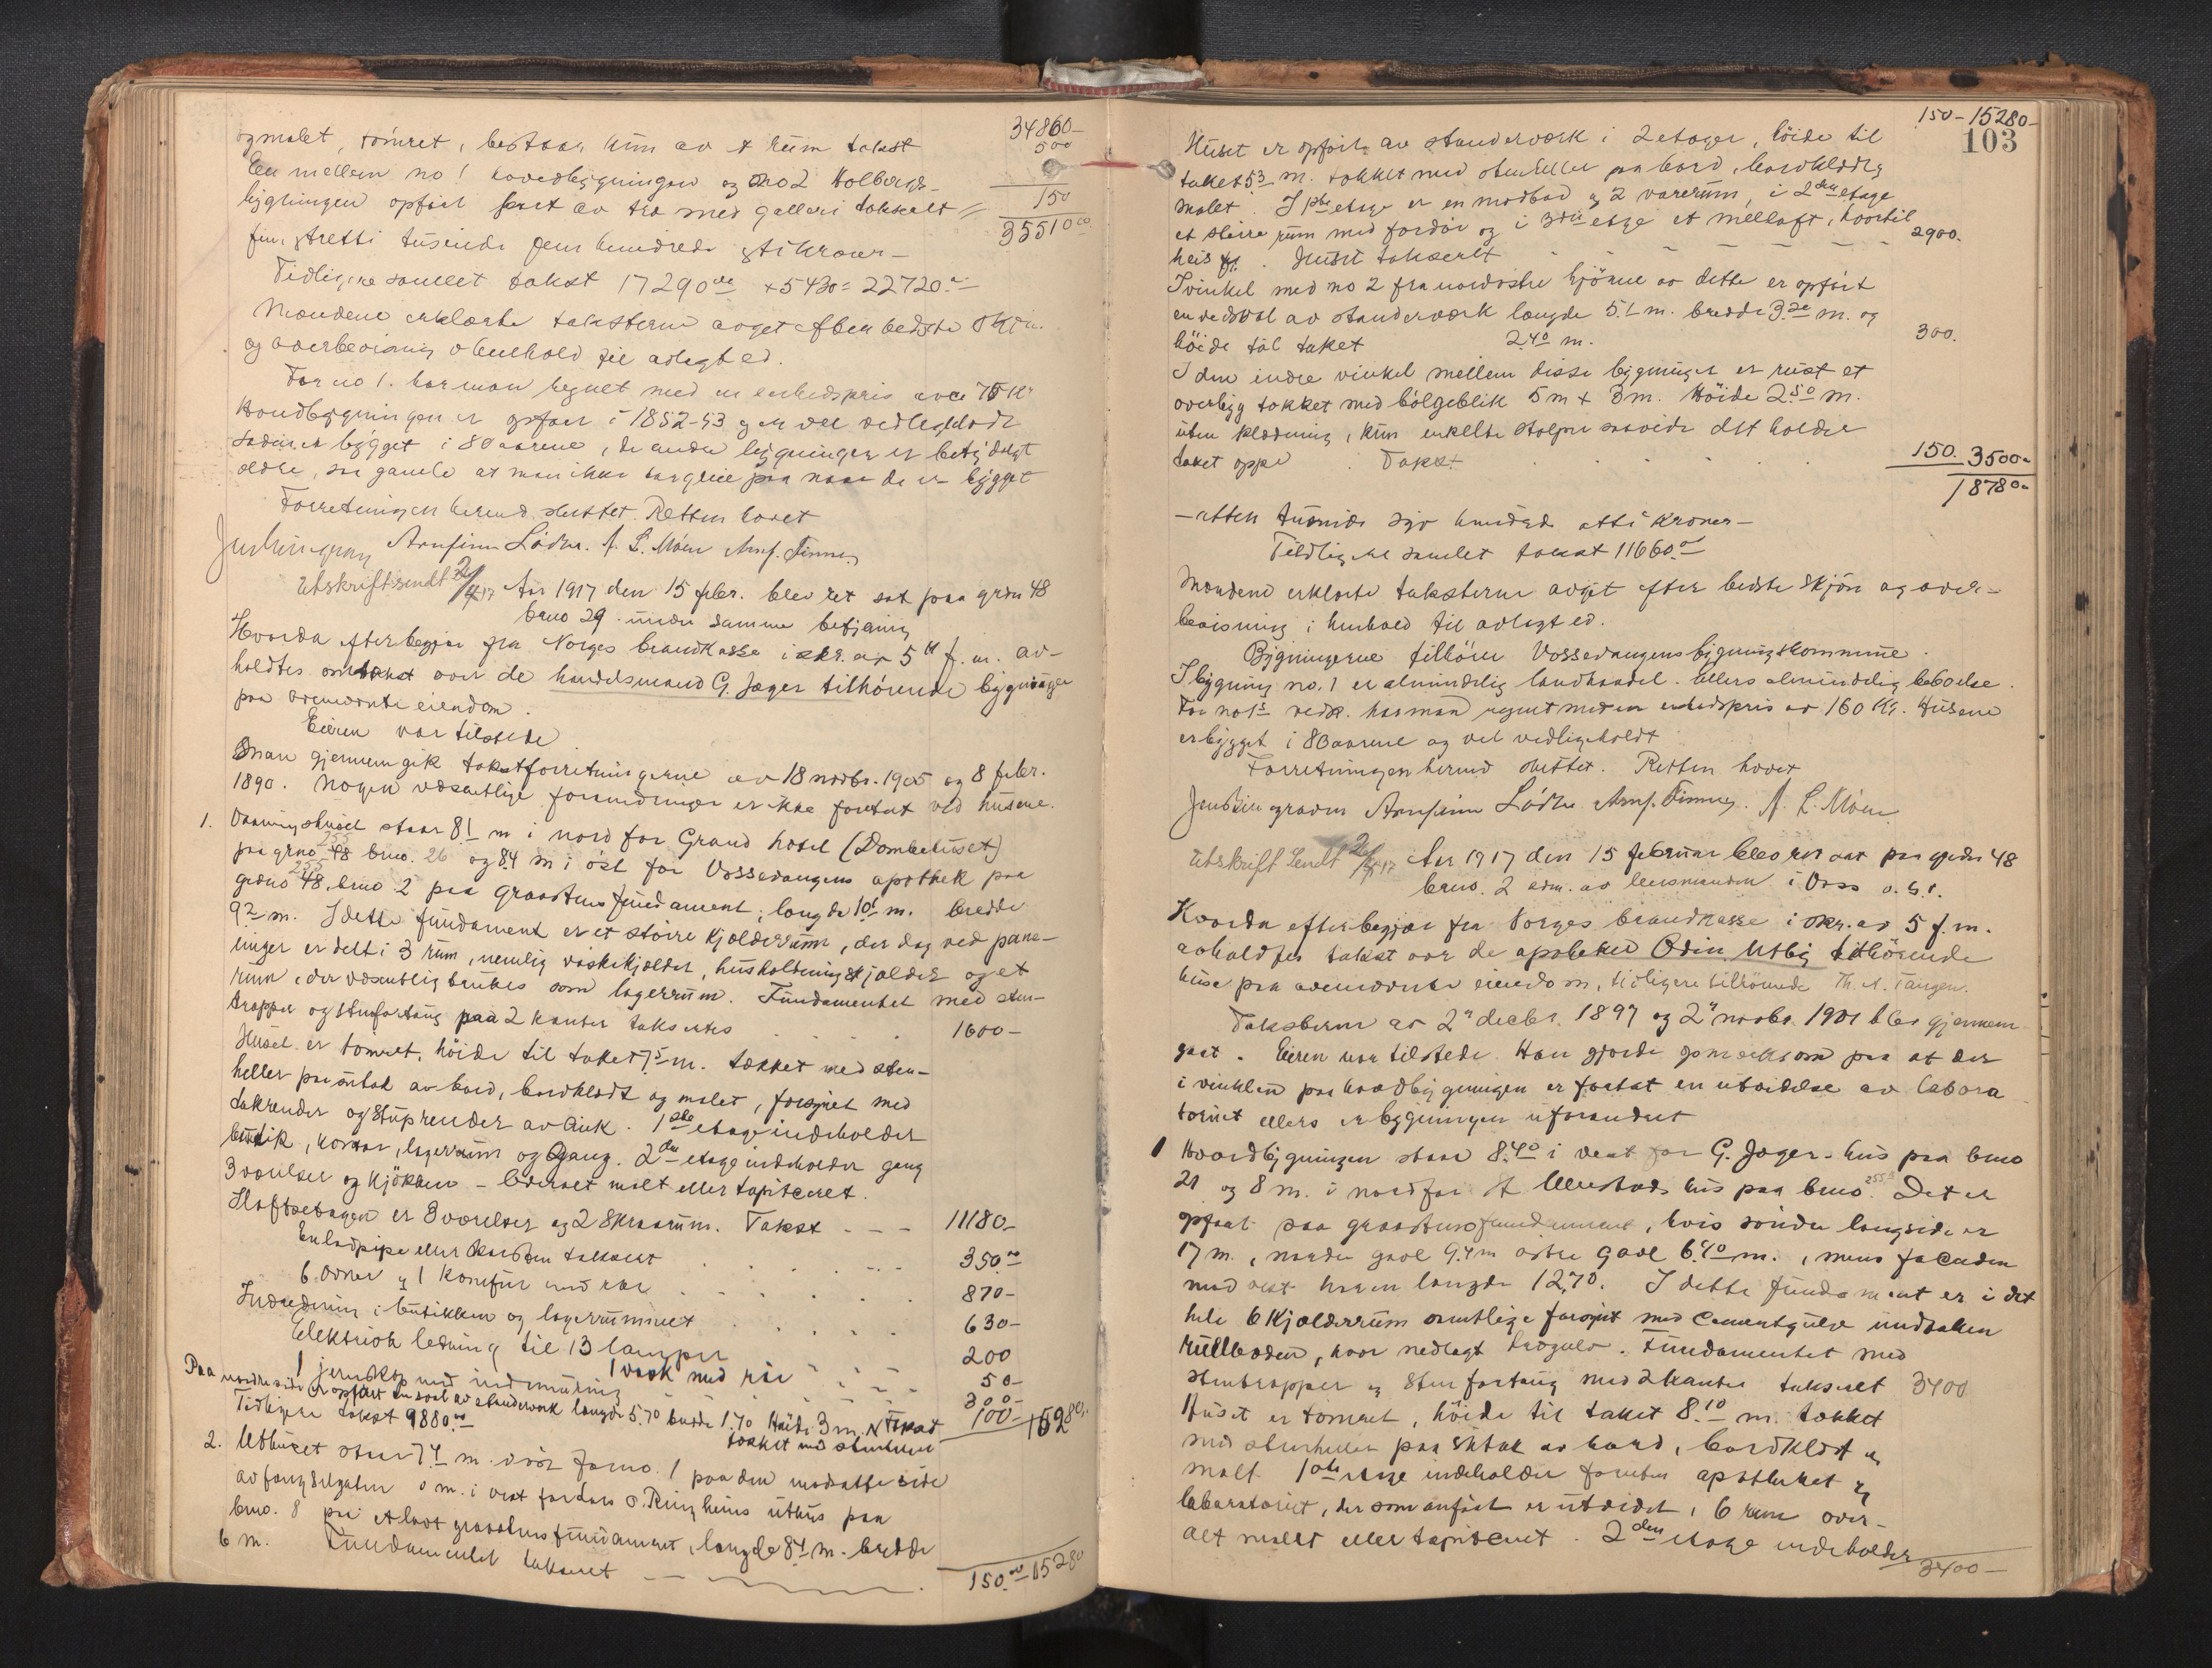 34860-
og malet, tömret, bestaar kun av 1 rum takst 500
En mellem no 1 hovedbygningen og no 2 Holbergs-
bygningen opført av træ med galleri takseret 150
3551000
fem og tretti tusende fem hundrede og ti kroner -
Tidligere samlet takst 17290 + 5430 = 22720.
Mændene erklærte taksterne avget efter bedste skjøn
og overbevisning i henhold til avlagt ed.
For no 1. har man regnet med en enhedspris av 75 Kr
Hovedbygningen er opført i 1852-53 og er vel vedlikeholdt
bygget i 80 aarene, de andre bygninger er betydelig
ældre, saa gamle at man ikke har greie paa naar de er bygget
Forretningen herved sluttet. Retten hævet
Arnfinn Lödve. A. L. Möen Arnf. Finne
Utskrift sendt 26/4 17 Aar 1917 den 15 febr. blev ret sat paa grdn 48
brno 29 under samme betjening
Hvorda efter begjær fra Norges brandkasse i skr. av 5 f. m. av-
holdtes omtakst over de handelsmand G. Jæger tilhörende bygninger
paa ovennævnte eiendom.
Eieren var tilstede
Man gjennemgik takstforretningerne av 18 novbr. 1905 og 8 febr.
1890. Nogen væsentlige forandringer er ikke foretat ved husene.
1. Vaaningshuset staar 81 m i nord for Grand hotel (Dombehuset)
paa grno 48 brno. 26 og 84 m i öst for Vossevangens apothek paa
255
grdno 48, brno 2 paa graastens fundament, længde 101 m. bredde
255
92 m. I dette fundament er et större kjælderrum, der dog ved pane-
linger er delt i 3 rum, nemlig vaskekjælder, husholdningskjælder og et
rum, der væsentlig brukes som lagerrum. Fundamentet med sten-
trapper og stenfortaug paa 2 kanter takseres 1600-
Huset er tömret, höide til taket 75 m. tækket med sten-
heller paa sutak av bord, bordklædt og malet, forsynet med
takrender og stuprender av zink. 1ste etage indeholder
butik, kontor, lagerrum og gang. 2den etage indeholder gang
3 værelser og kjökken - overalt malt eller tapiceret.
I loftsetagen er 3 værelser og 2 skraarum. Takst - - - 11180-
En ladpipe eller skorsten takseret 350.
6 ovner og 1 komfur med rör 870-
Indredning i butikken og lagerrummet 630-
Elektrisk ledning til 13 lamper 200
1 vask med rör 50-
1 jernskap med indmuring 300-
Paa nordre side er opført en sval av standerværk længde 5.70 bredde 1.70 Höide 3 m. Takst 100- 15280,-
tækket med stenheller
Tidligere takst 9880.
2. Uthuset staar 74 m. i öst for no. 1 paa den modsatte side
av fængselsgaten 0 m. i vest for Lars O. Ringheims uthus paa
brno. 8 paa et lavt graastens fundament, længde 84 m. bredde
6 m. Fundamentet takseret 150.00 15280

150-15280-
103
Huset er opfört av standerværk i 2 etager, höide til
taket 53 m. tækket med stenheller paa bord, bordklædt og
malet. I 1ste etage er en matbod og 2 varerum, i 2den etage
et större rum med fordör og i 3die etage et mellaft, hvortil
heis. Huset takseret 2900.
I vinkel med no 2 fra nordöstre hjörne av dette er opfört
en vedsval av standerværk længde 5.1 m. bredde 3.20 m. og
höide til taket 2.40 m. 300.
I den indre vinkel mellem disse bygninger er reist et
overbyg tækket med bölgeblik 5 m x 3 m. Höide 2.50 m.
uten klædning, kun enkelte stolper saavidt det holder
taket oppe. Takst 150. 3500
18780
- atten tusende syv hundrede otti kroner -
Tidligere samlet takst 11660.
Mændene erklærte taksterne avgit efter bedste skjön og over-
bevisning i henhold til avlagt ed.
Bygningerne tilhörer Vossevangens bygningskommune.
I bygning no. 1 er almindelig landhandel. Ellers almindelig beboelse.
For no 1s vedk. har man regnet med en enhedspris av 160 Kr. Husene
er bygget i 80 aarene og vel vedligeholdt
Forretningen herved sluttet. Retten hævet
Arnfinn Lödve Arnf. Finne. A. L. Möen
Utskrift sendt 26/4 17 Aar 1917 den 15 februar blev ret sat paa grdn 48
brno. 2 adm. av lensmanden i Voss o. s. v.
Hvorda efter begjær fra Norges brandkasse i skr. av 5 f. m.
avholdtes takst over de apoteker Odin Utby tilhörende
huse paa ovennævnte eiendom, tidligere tilhörende Th. A. Tangen.
Taksterne av 2 decbr. 1897 og 2 novbr. 1901 blev gjennem-
gaat. Eieren var tilstede. Han gjorde opmerksom paa at der
i vinklen paa hovedbygningen er foretat en utvidelse av labora
toriet ellers er bygningen uforandret
1 Hovedbygningen staar 8.40 i vest for G. Jæger-hus paa brno
21 og 8 m. i nord for hus paa brno 255. Det er
opfört paa graastensfundament, hvis söndre langside er
17 m., nordre gavl 9.4 m östre gavl 6.40 m., mens facaden
mod vest har en længde 12,70. I dette fundament er i det
hele 6 kjælderrum samtlige forsynt med cementgulv undtaken
rullboden, hvor nedlagt trægulv. Fundamentet med
stentrapper og stenfortaug med 2 kanter takseret 3400
Huset er tömret, höide til taket 8.10 m. tækket
med stenheller paa sutak av bord, bordklædt og
malt. 1ste etage indeholder foruten apotheket og
laboratoriet, der som anfört er utvidet, 6 rum over-
alt malt eller tapiceret. 2den etage indeholder
3400-